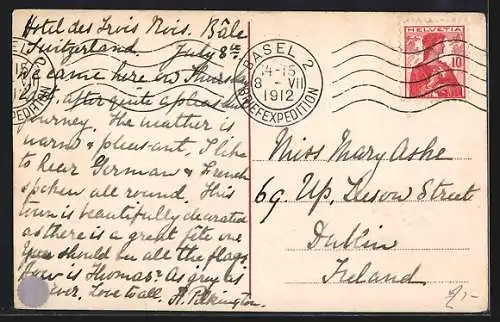 Hotel des Trois Rois. Bâle
Switzerland. July 8th
We came here on Thursday
last, after quite a pleasant
journey. The weather is
warm & pleasant. I like
to hear German & French
spoken all round. This
town is beautifully decorated
as there is a great fête on
You should see all the flags
How is Thomas? As grey as
ever. Love to all. A. Pilkington.
BASEL 2
14-15
8 - VII
1912
BRIEFEXPEDITION
15
12
EXPEDITION
HELVETIA
10
Miss Mary Ashe
69 Up. Leeson Street
Dublin
Ireland
2,-